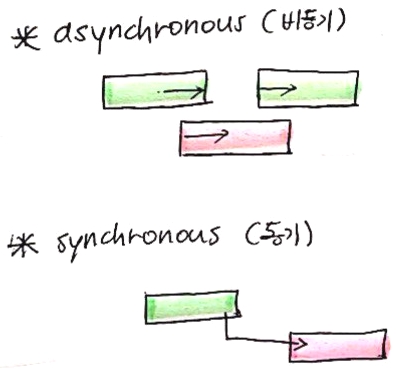 * asynchronous (비동기)
* synchronous (동기)